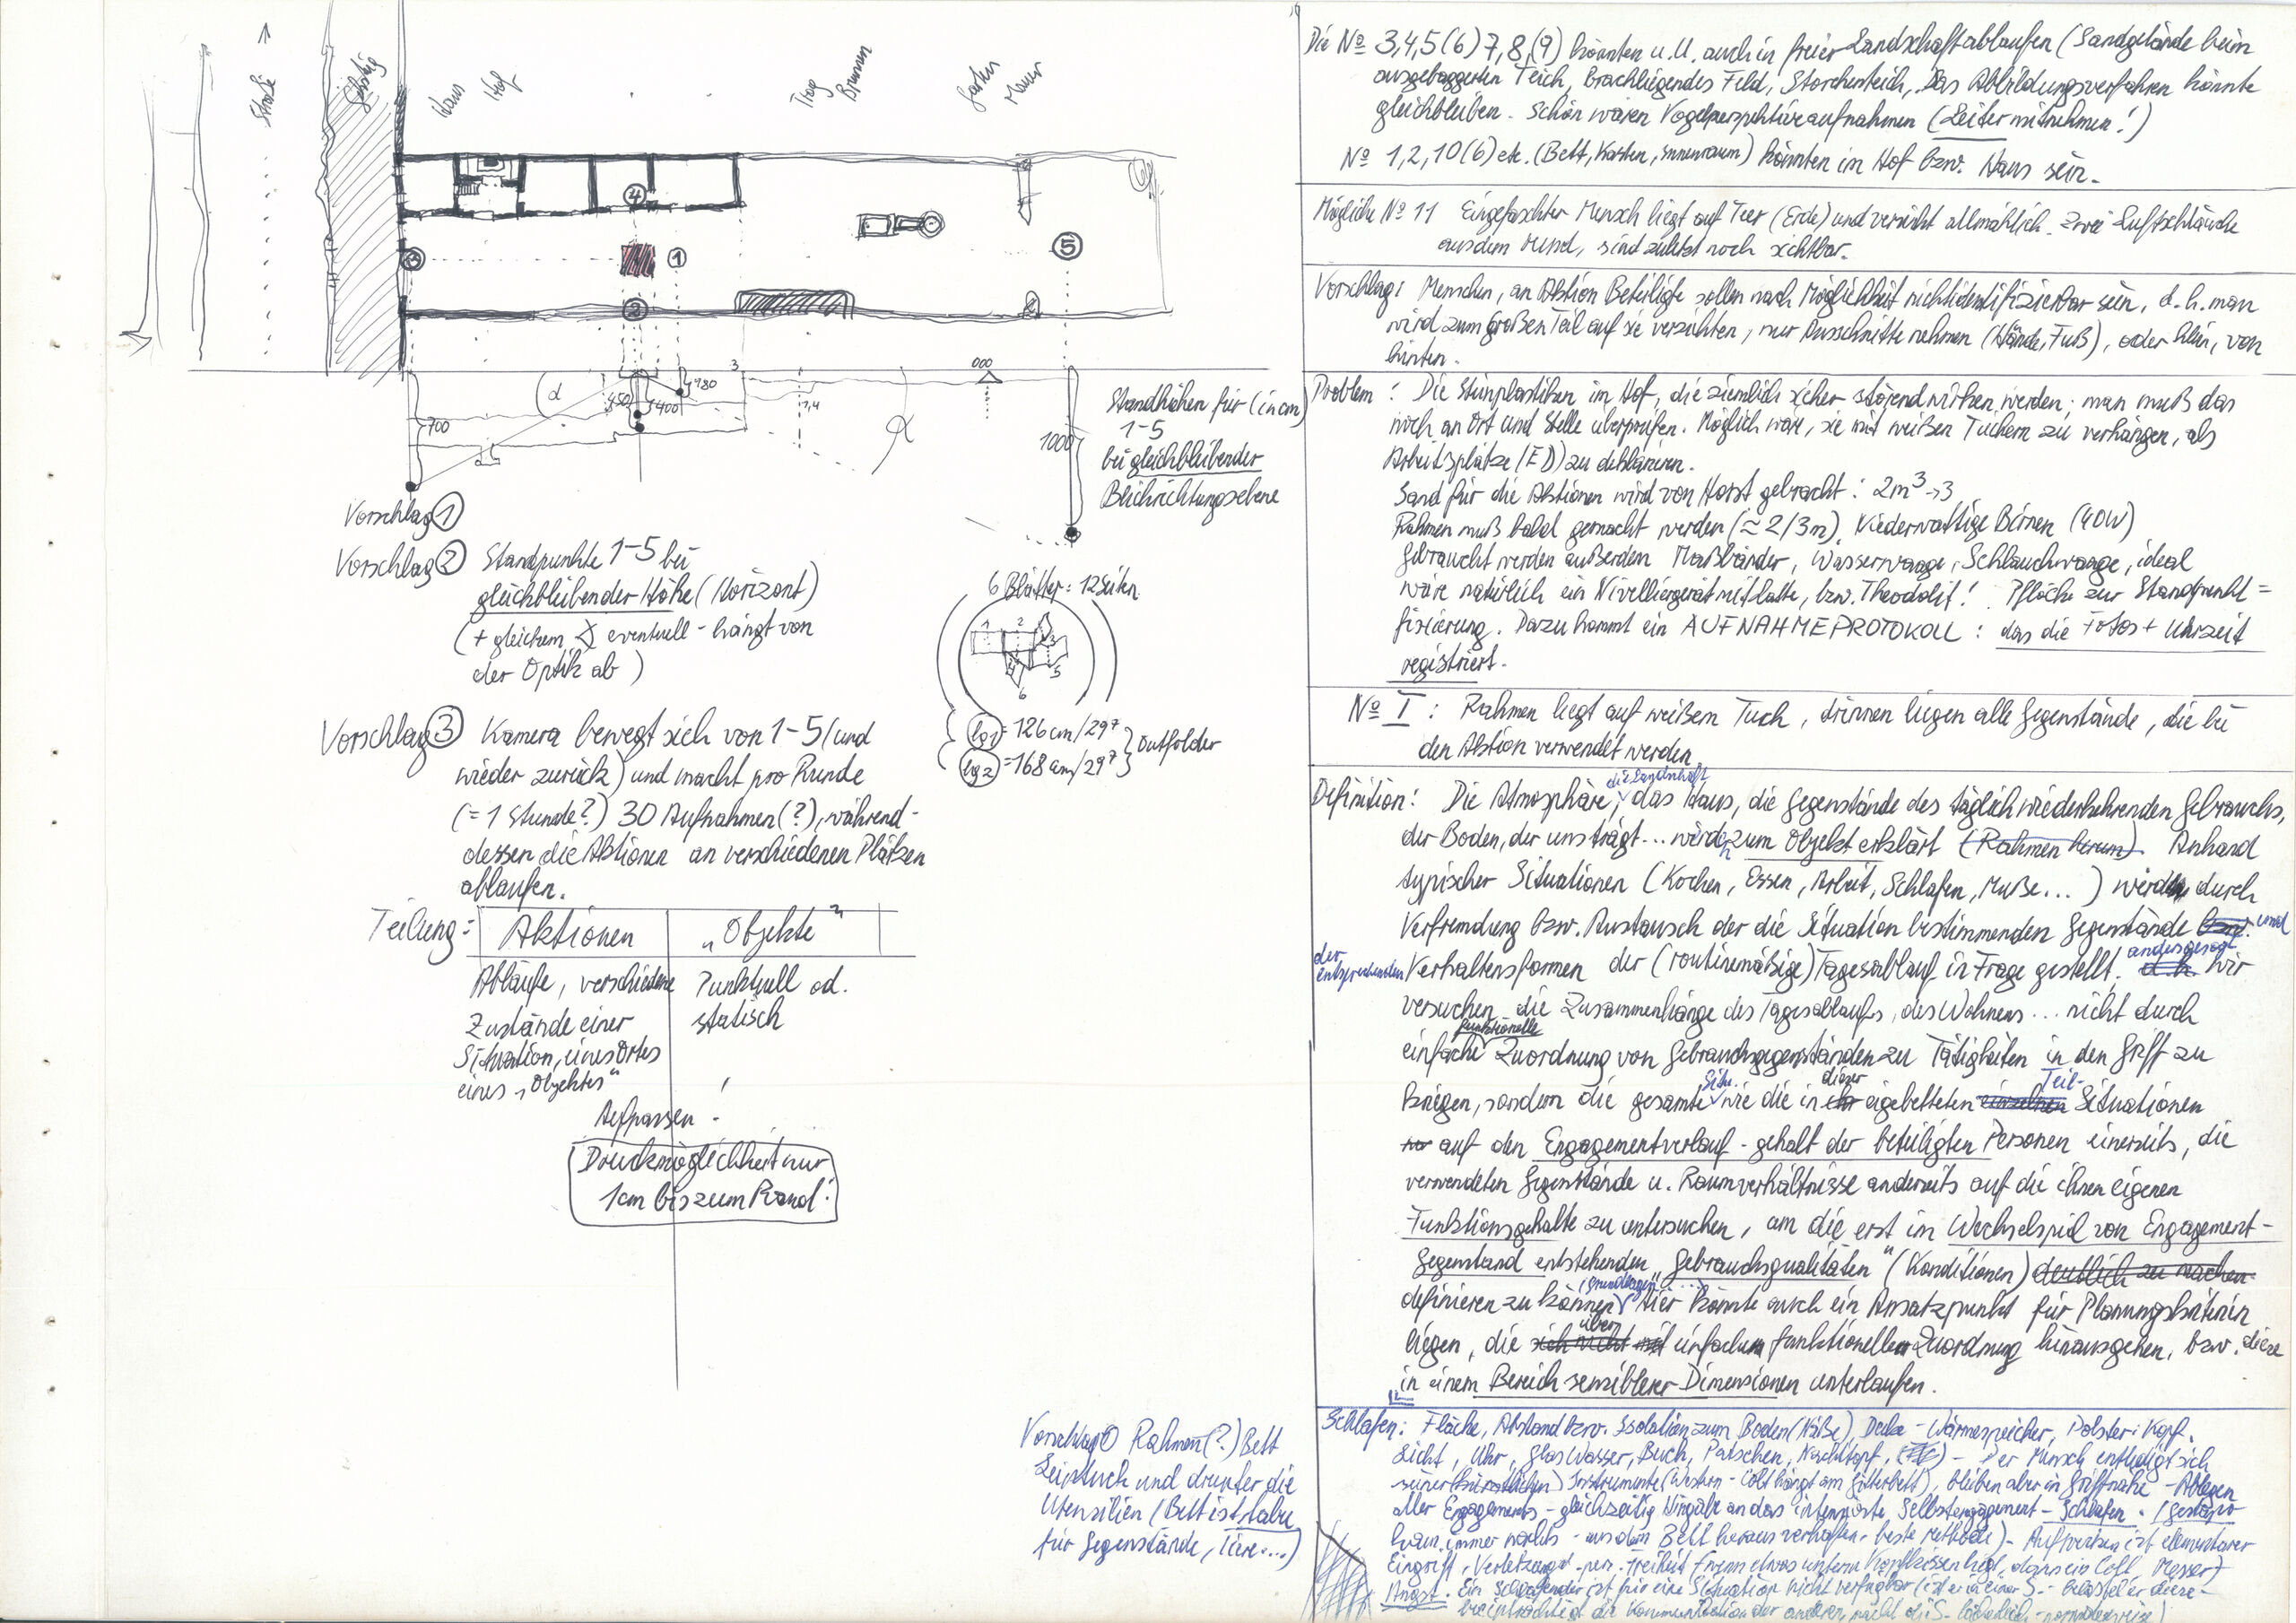 Straße
Gehsteig
Haus
Hof
Trog
Brunnen
Garten
Mauer
4
3
1
2
5
d
450
400
180
3
1,4
000
700
1000
Standhöhen für (in cm)
1-5
bei gleichbleibender
Blickrichtungsebene
Vorschlag 1
Vorschlag 2 Standpunkte 1-5 bei
gleichbleibender Höhe (Horizont)
(+ gleichem ∢ eventuell - hängt von
der Optik ab)
6 Blätter: 12 Seiten
1 2 3
4 5
6
lg1 = 126 cm/29⁷
lg2 = 168 cm/29⁷ } outfolder
Vorschlag 3 Kamera bewegt sich von 1-5 (und
wieder zurück) und macht pro Runde
(= 1 Stunde?) 30 Aufnahmen (?), während-
dessen die Aktionen an verschiedenen Plätzen
ablaufen.
Teilung: Aktionen „Objekte"
Abläufe, verschiedene Punktuell od.
Zustände einer statisch
Situation, eines Ortes
eines „Objektes"
Aufpassen -
Druckmöglichkeit nur
1cm bis zum Rand!
Vorschlag Rahmen (?) Bett
Leintuch und drunter die
Utensilien (Bett ist tabu
für Gegenstände, Tiere...)
Die No 3,4,5 (6) 7,8,(9) könnten u.U. auch in freier Landschaft ablaufen (Sandgelände beim
ausgebaggerten Teich, brachliegendes Feld, Storchenteich,. Das Abbildungsverfahren könnte
gleichbleiben. Schön wären Vogelperspektiveaufnahmen (Leiter mitnehmen!)
No 1,2,10 (6) etc. (Bett, Kasten, Innenraum) könnten im Hof bzw. Haus sein.
Mögliche No 11 Eingefaschter Mensch liegt auf Teer (Erde) und versinkt allmählich. Zwei Luftschläuche
aus dem Mund, sind zuletzt noch sichtbar.
Vorschlag: Menschen, an Aktion Beteiligte sollen nach Möglichkeit nicht identifizierbar sein, d.h. man
wird zum Großen Teil auf sie verzichten, nur Ausschnitte nehmen (Hände, Fuß), oder klein, von
hinten.
Problem: Die Steinplastiken im Hof, die ziemlich sicher störend wirken werden; man muß das
noch an Ort und Stelle überprüfen. Möglich wär, sie mit weißen Tüchern zu verhängen, als
Arbeitsplätze (ED) zu deklarieren.
Sand für die Aktionen wird von Horst gebracht: 2m³→3
Rahmen muß bald gemacht werden (≈ 2/3m). Niederwattige Birnen (40W)
Gebraucht werden außerdem Maßbänder, Wasserwaage, Schlauchwaage, ideal
wäre natürlich ein Nivelliergerät mit Latte, bzw. Theodolit! Pflöcke zur Standpunkt=
fixierung. Dazu kommt ein AUFNAHMEPROTOKOLL: das die Fotos + Uhrzeit
registriert.
No I: Rahmen liegt auf weißem Tuch, drinnen liegen alle Gegenstände, die bei
den Aktion verwendet werden
Definition: Die Atmosphäre, die Landschaft, das Haus, die Gegenstände des täglich wiederkehrenden Gebrauchs,
der Boden, der uns trägt... werden zum Objekt erklärt (Rahmen herum). Anhand
typischer Situationen (Kochen, Essen, Arbeit, Schlafen, Muße...) werden durch
Verfremdung bzw. Austausch der die Situation bestimmenden Gegenstände bzw. und
der entsprechenden Verhaltensformen der (routinemäßige) Tagesablauf in Frage gestellt. d.h. anders gesagt wir
versuchen die Zusammenhänge des Tagesablaufs, des Wohnens... nicht durch
einfache funktionelle Zuordnung von Gebrauchsgegenständen zu Tätigkeiten in den Griff zu
kriegen, sondern die gesamte Situ. wie die in dieser eigebetteten einzelnen Teil-Situationen
auf den Engagementverlauf - gehalt der beteiligten Personen einerseits, die
verwendeten Gegenstände u. Raumverhältnisse anderseits auf die ihnen eigenen
Funktionsgehalte zu untersuchen, um die erst im Wechselspiel von Engagement-
Gegenstand entstehenden „Gebrauchsqualitäten" (Konditionen) deutlich zu machen
definieren zu können (Grundlagen ....) Hier könnte auch ein Ansatzpunkt für Planungskriterien
liegen, die sich nicht mit über einfachen funktionellen Zuordnung hinausgehen, bzw. diese
in einem Bereich sensiblerer Dimensionen unterlaufen.
Schlafen: Fläche, Abstand bzw. Isolation zum Boden (Nässe), Decke - Wärmespeicher, Polster: Kopf.
Licht, Uhr, Glas Wasser, Buch, Patschen, Nachttopf, - Der Mensch entledigt sich
seiner (künstlichen) Instrumente (Western - Colt hängt am Gitterbett), bleiben aber in Griffnähe - Ablegen
aller Engagements - gleichzeitig Hingabe an das intensivste Selbstengagement - Schlafen. (Gestapo
kam immer nachts - aus dem Bett heraus verhaften - beste Methode) - Aufwecken ist elementarer
Eingriff, Verletzung d. pers. Freiheit (wenn etwas unterm Kopfkissen liegt, dann ein Colt, Messer)
Angst. Ein Schlafender ist für eine Situation nicht verfügbar (ist er in einer S.-
beeinträchtigt die Kommunikation der anderen macht d. S. lächerlich - normalerweise)